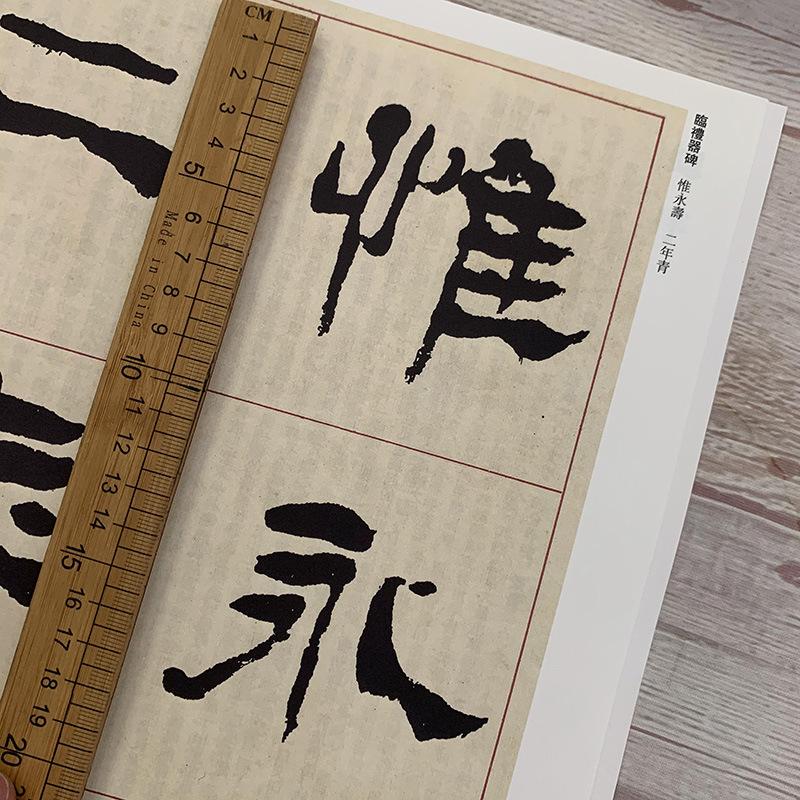 臨禮器碑 惟永壽 二年青
惟
永
二
CM
1
2
3
4
5
6
7
8
9
10
11
12
13
14
15
16
17
18
19
20
Made in China